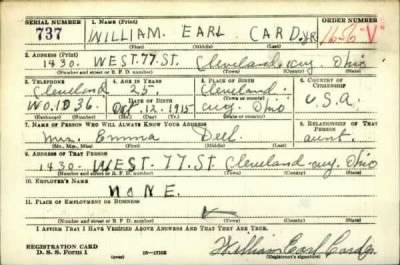 SERIAL NUMBER 1. NAME (Print) ORDER NUMBER
737 WILLIAM. EARL CARD. JR. 1656 "V"
(First) (Middle) (Last)
2. ADDRESS (Print)
1430. WEST. 77. ST. Cleveland cuy. Ohio
(Number and street or R. F. D. number) (Town) (County) (State)
3. TELEPHONE 4. AGE IN YEARS 5. PLACE OF BIRTH 6. COUNTRY OF CITIZENSHIP
Cleveland 25. Cleveland.
DATE OF BIRTH (Town or county)
WO. 1036. Oct. 12. 1915 cuy. Ohio U.S.A.
(Exchange) (Number) (Mo.) (Day) (Yr.) (State or country)
7. NAME OF PERSON WHO WILL ALWAYS KNOW YOUR ADDRESS 8. RELATIONSHIP OF THAT PERSON
Mrs. Emma aunt.
(Mr., Mrs., Miss) (First) (Middle) (Last)
9. ADDRESS OF THAT PERSON
1430. WEST. 77. ST. Cleveland cuy. Ohio
(Number and street or R. F. D. number) (Town) (County) (State)
10. EMPLOYER'S NAME
NONE.
11. PLACE OF EMPLOYMENT OR BUSINESS
(Number and street or R. F. D. number) (Town) (County) (State)
I AFFIRM THAT I HAVE VERIFIED ABOVE ANSWERS AND THAT THEY ARE TRUE.
REGISTRATION CARD
D. S. S. Form 1 (over) William Earl Card Jr.
(Registrant's signature)